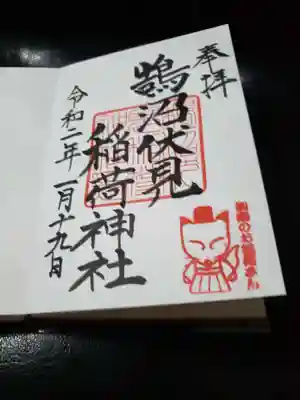 奉拝
鵠沼伏見
稲荷神社
令和二年一月十九日